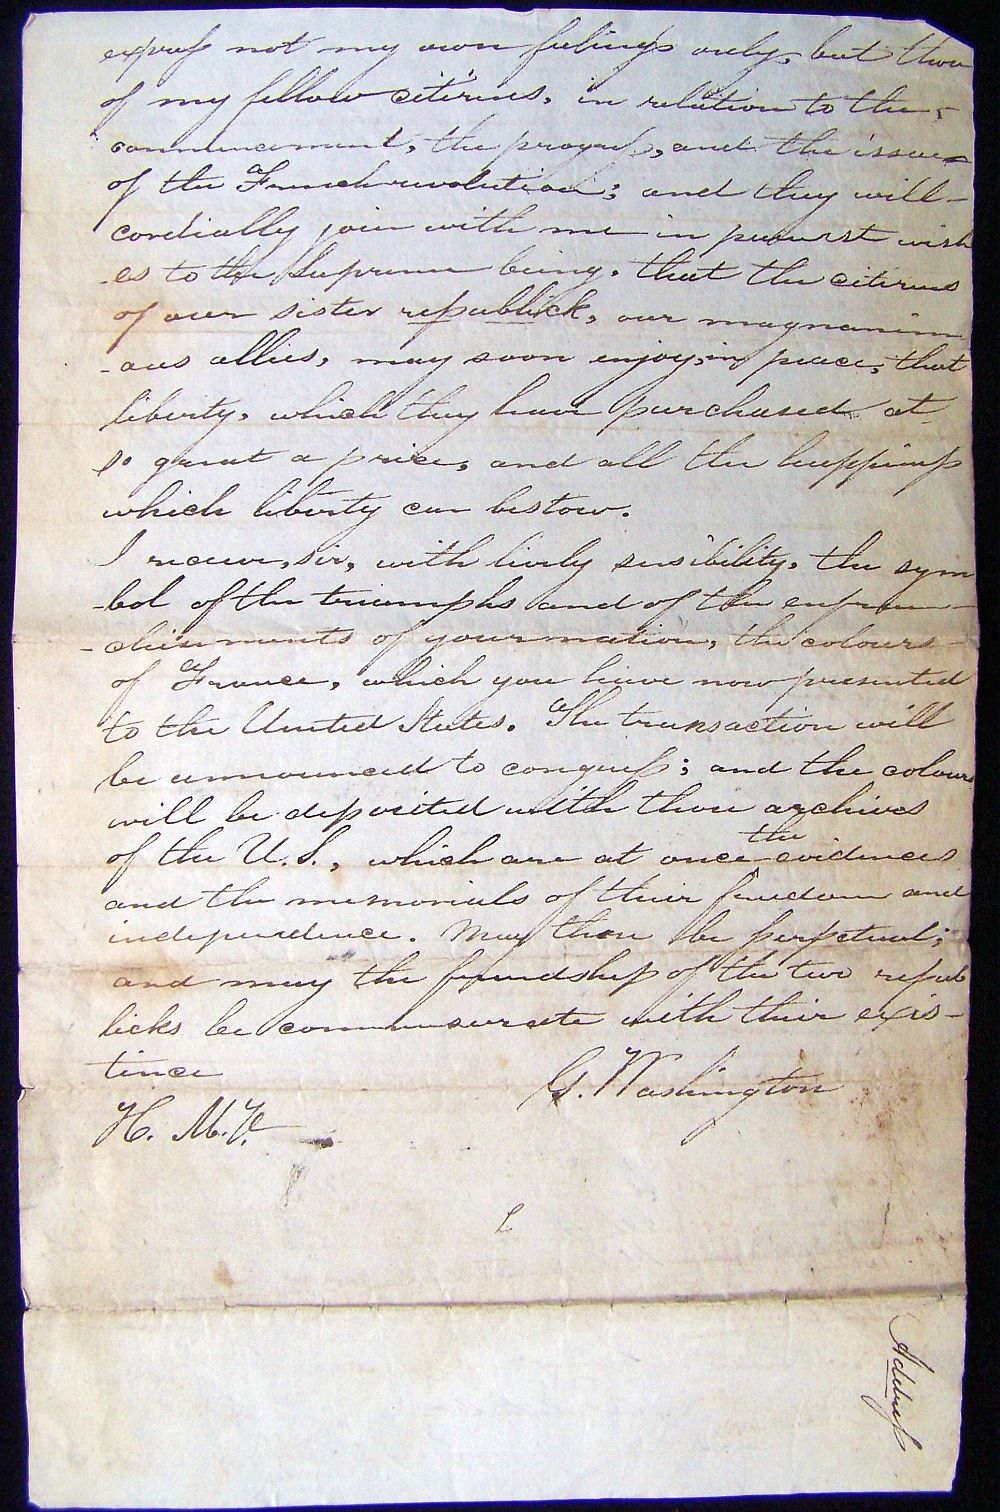 express not my own feelings only, but those
of my fellow citizens, in relation to the
commencement, the progress, and the issue
of the French revolution; and they will
cordially join with me in purest wish
-es to the Supreme being, that the citizens
of our sister republick, our magnanim
-ous allies, may soon enjoy, in peace, that
liberty, which they have purchased at
so great a price, and all the happiness
which liberty can bestow.
I receive, sir, with lively sensibility, the sym
-bol of the triumphs and of the enfran-
-chisements of your nation, the colours
of France, which you have now presented
to the United States. The transaction will
be announced to congress; and the colours
will be deposited with those archives
of the U.S., which are at once the evidences
and the memorials of their freedom and
independence. May these be perpetual;
and may the friendship of the two repub
licks be commensurate with their exis-
tence
G. Washington
H. M. F.
Address